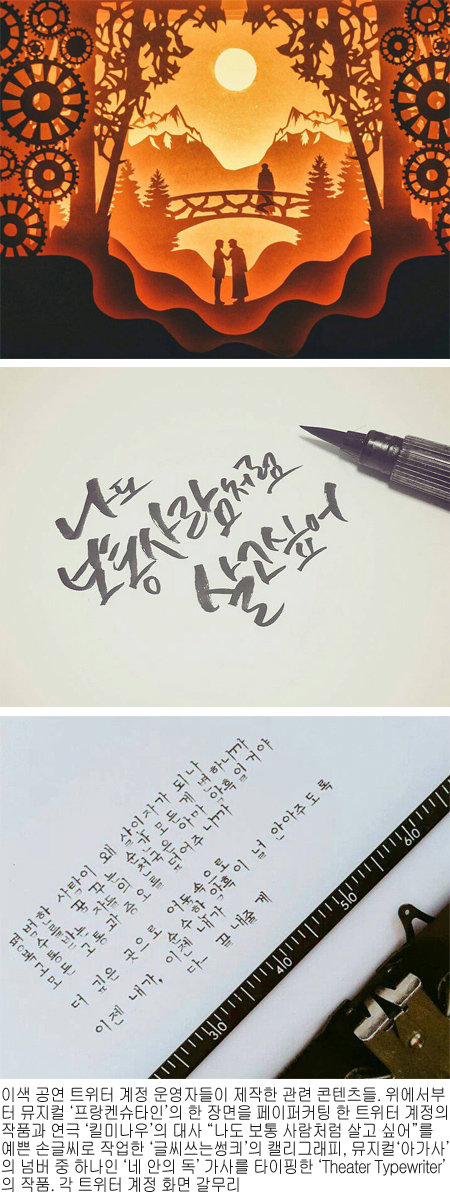 나도
보통사람처럼
살고싶어
평범한 사람이 왜 살인자가 되나
더 깊은 곳으로 어둠속으로
순수한 암흑이 널 안아주도록
이젠 내가, 이젠 내가
끝내줄게
30
40
50
60
이색 공연 트위터 계정 운영자들이 제작한 관련 콘텐츠들. 위에서부
터 뮤지컬 ‘프랑켄슈타인’의 한 장면을 페이퍼커팅 한 트위터 계정의
작품과 연극 ‘킬미나우’의 대사 “나도 보통 사람처럼 살고 싶어”를
예쁜 손글씨로 작업한 ‘글씨쓰는썽크’의 캘리그래피, 뮤지컬‘아가사’
의 넘버 중 하나인 ‘네 안의 독’ 가사를 타이핑한 ‘Theater Typewriter’
의 작품. 각 트위터 계정 화면 갈무리